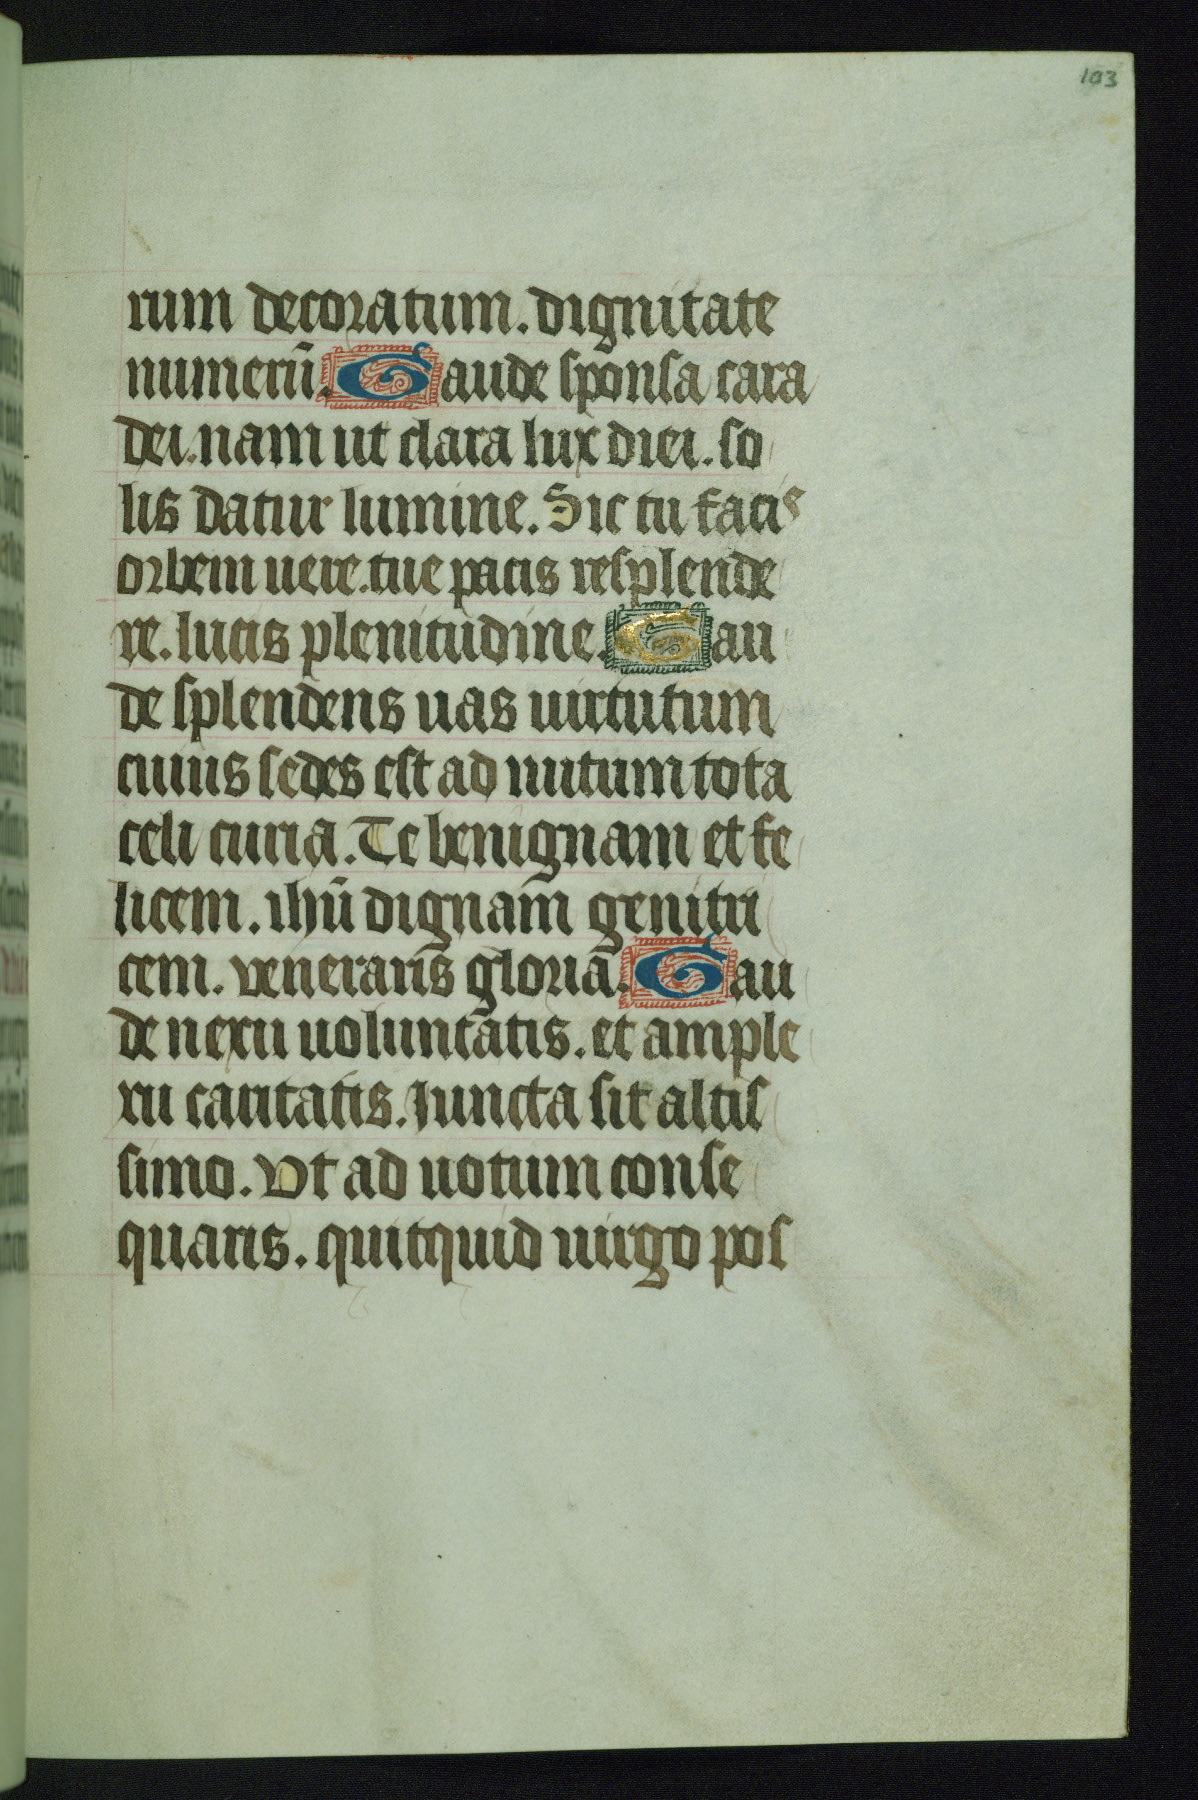 103
rum decoratum. dignitate
numerū. Gaude sponsa cara
dei. nam ut clara lux diei. so
lis datur lumine. Sic tu facis
orbem uere. tue pacis resplende
re. lucis plenitudine. Gau
de splendens uas uirtutum
cuius sedes est ad nutum tota
celi curia. Te benignam et fe
licem. ihū dignam genitri
cem. veneraris gloria. Gau
de nexu uoluntatis. et ample
xu caritatis. Iuncta sit altis
simo. Vt ad uotum conse
quaris. quitquid uirgo pos